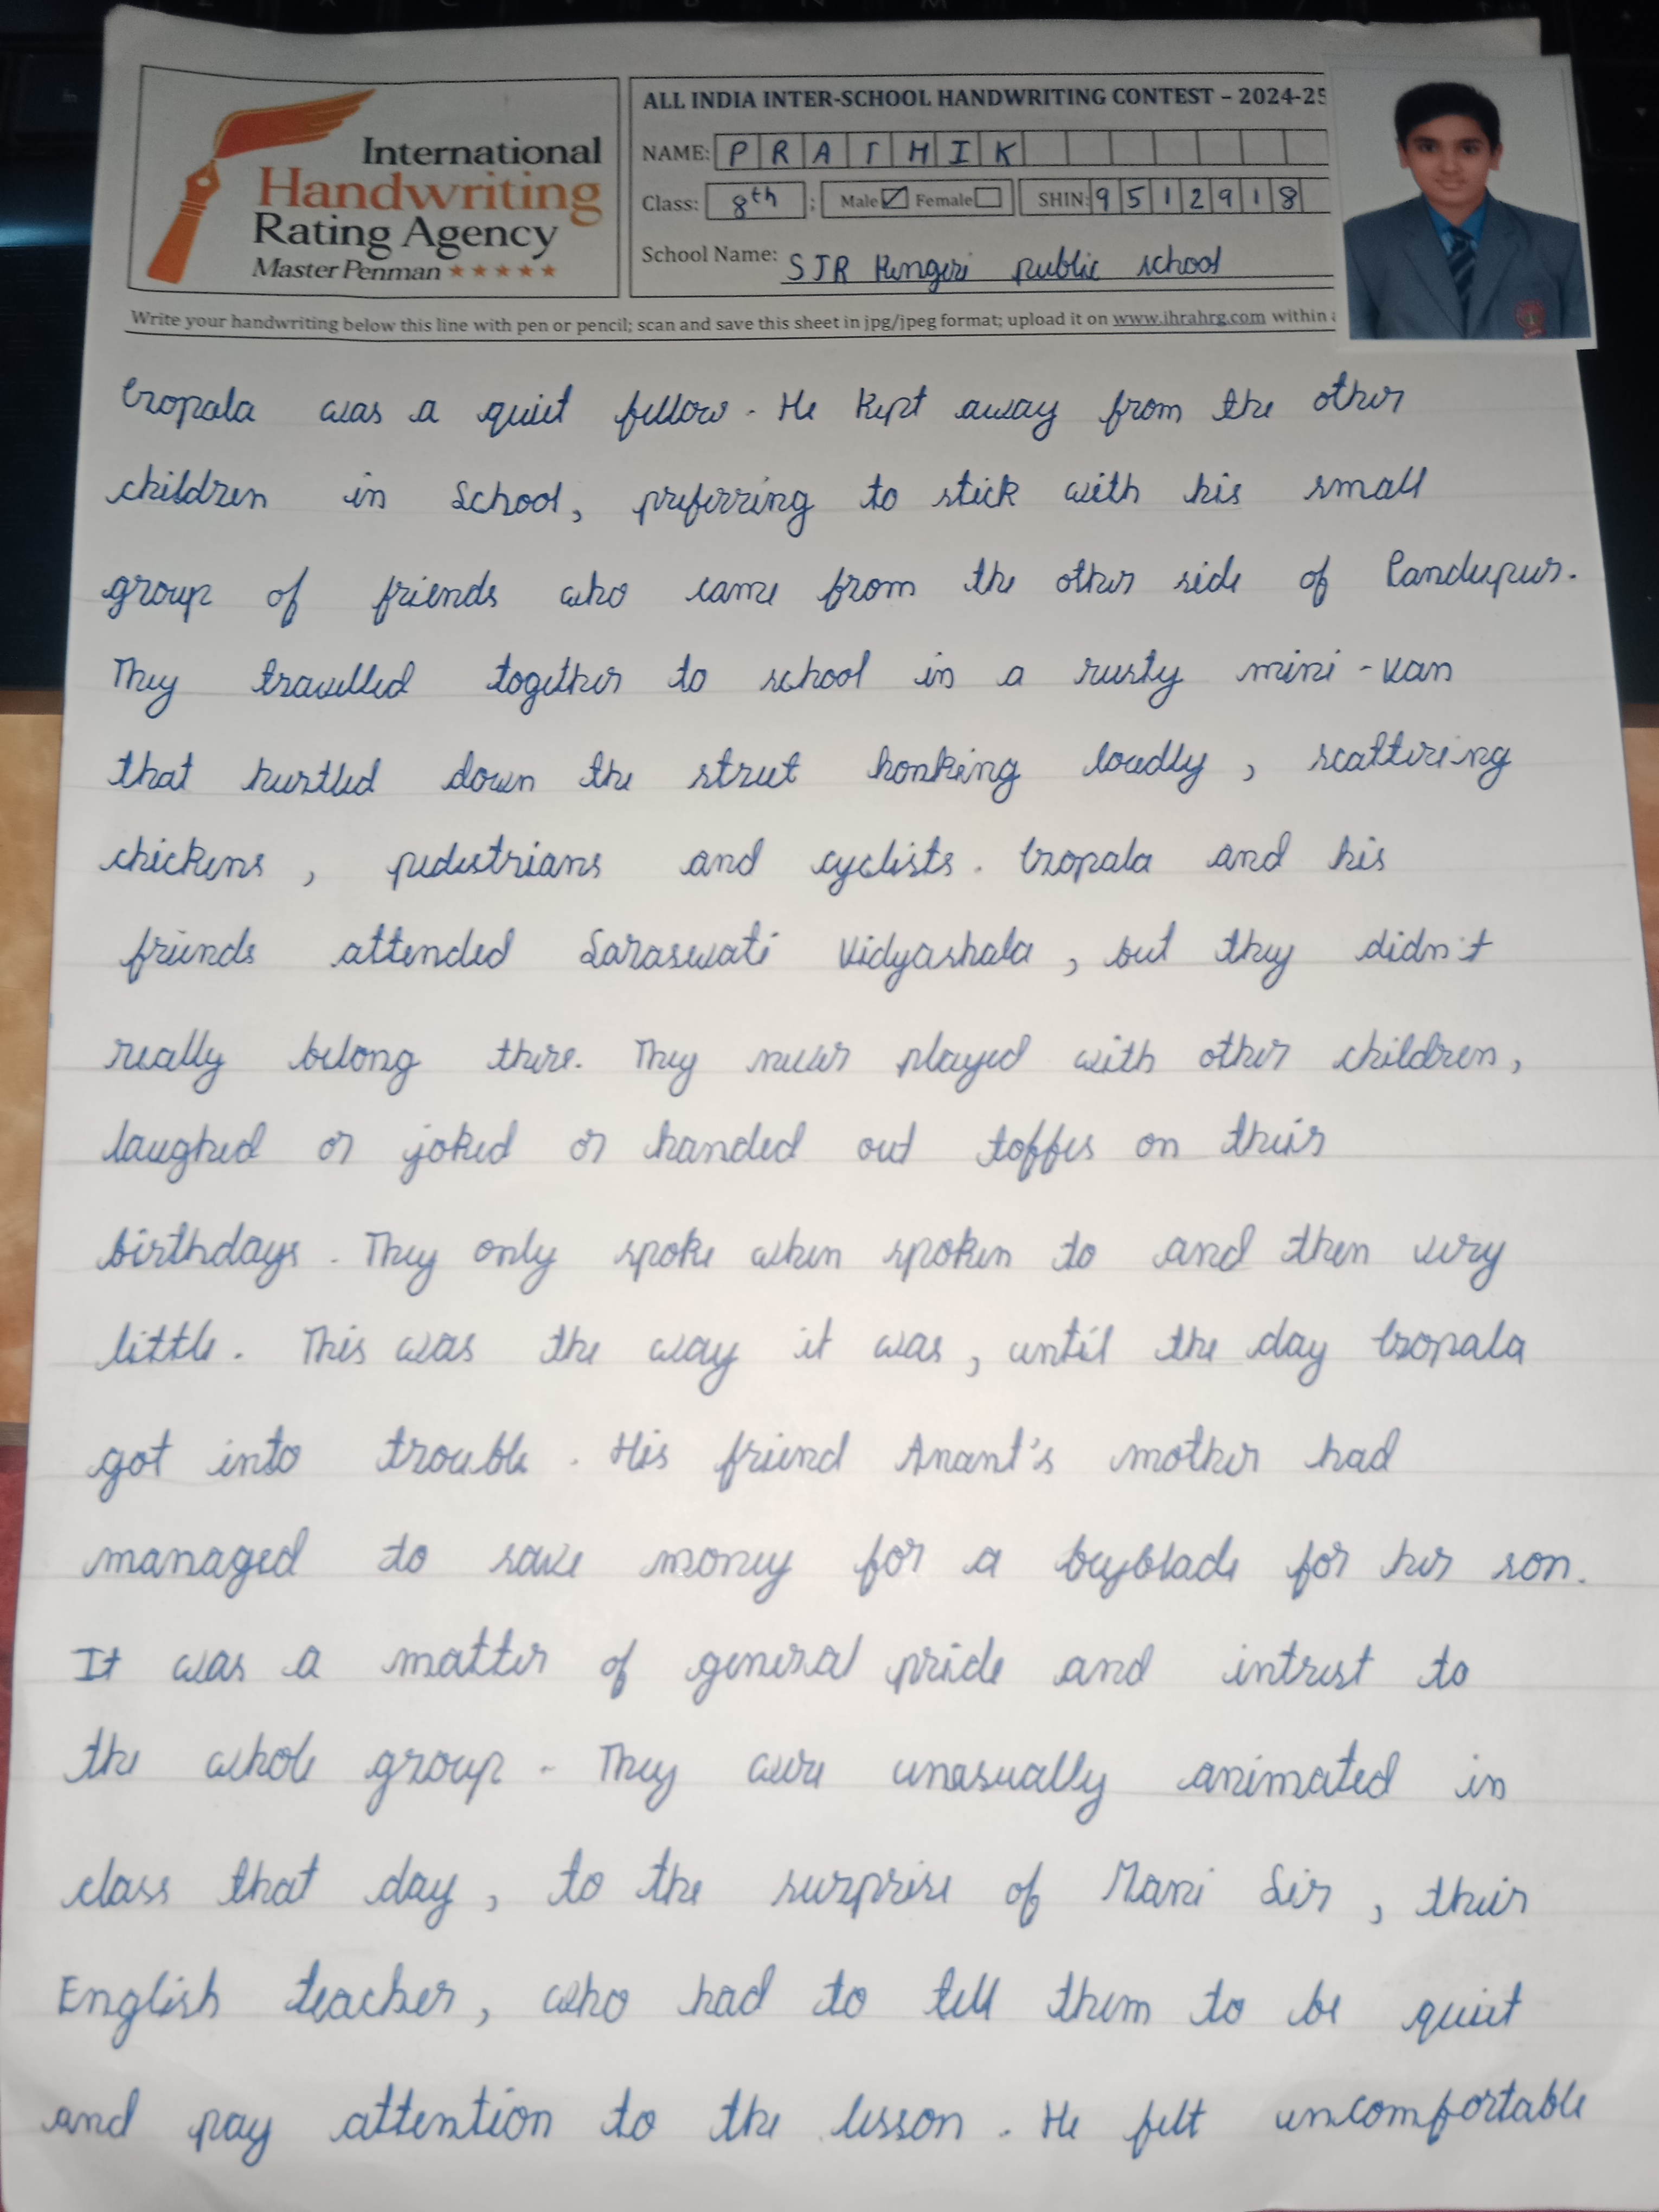 International
Handwriting
Rating Agency
Master Penman ★★★★★
ALL INDIA INTER-SCHOOL HANDWRITING CONTEST – 2024-25
NAME: PRATHIK
Class: 8th ; Male ☑ Female ☐ SHIN: 9512918
School Name: SJR Kengeri public school
Write your handwriting below this line with pen or pencil; scan and save this sheet in jpg/jpeg format; upload it on www.ihrahrg.com within
Gopala was a quiet fellow. He kept away from the other
children in School, preferring to stick with his small
group of friends who came from the other side of Pandupur.
They travelled together to school in a rusty mini-van
that hurtled down the street honking loudly, scattering
chickens, pedestrians and cyclists. Gopala and his
friends attended Saraswati Vidyashala, but they didn't
really belong there. They never played with other children,
laughed or joked or handed out toffes on their
birthdays. They only spoke when spoken to and then very
little. This was the way it was, until the day Gopala
got into trouble. His friend Anant's mother had
managed to save money for a beyblade for her son.
It was a matter of general pride and intrest to
the whole group. They were unasually animated in
class that day, to the surprise of Mani Sir, their
English teacher, who had to tell them to be quiet
and pay attention to the lesson. He felt uncomfortable